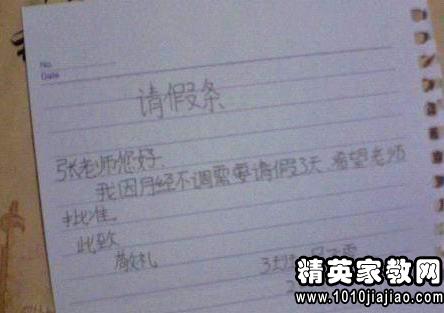 No.
Date
请假条
张老师您好.
我因月经不调需要请假3天.希望老师
批准.
此致
敬礼
精英家教网
http://www.1010jiajiao.com/